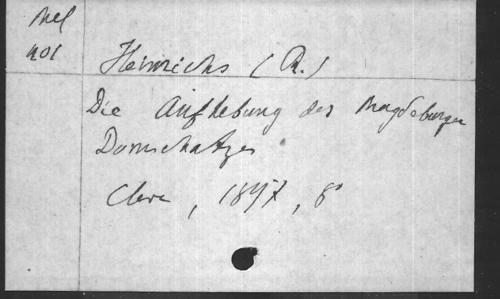 Mel
401
Heinrichs (R.)
Die Aufhebung des Magdeburger
Domschatzes
Cleve, 1897, 8°